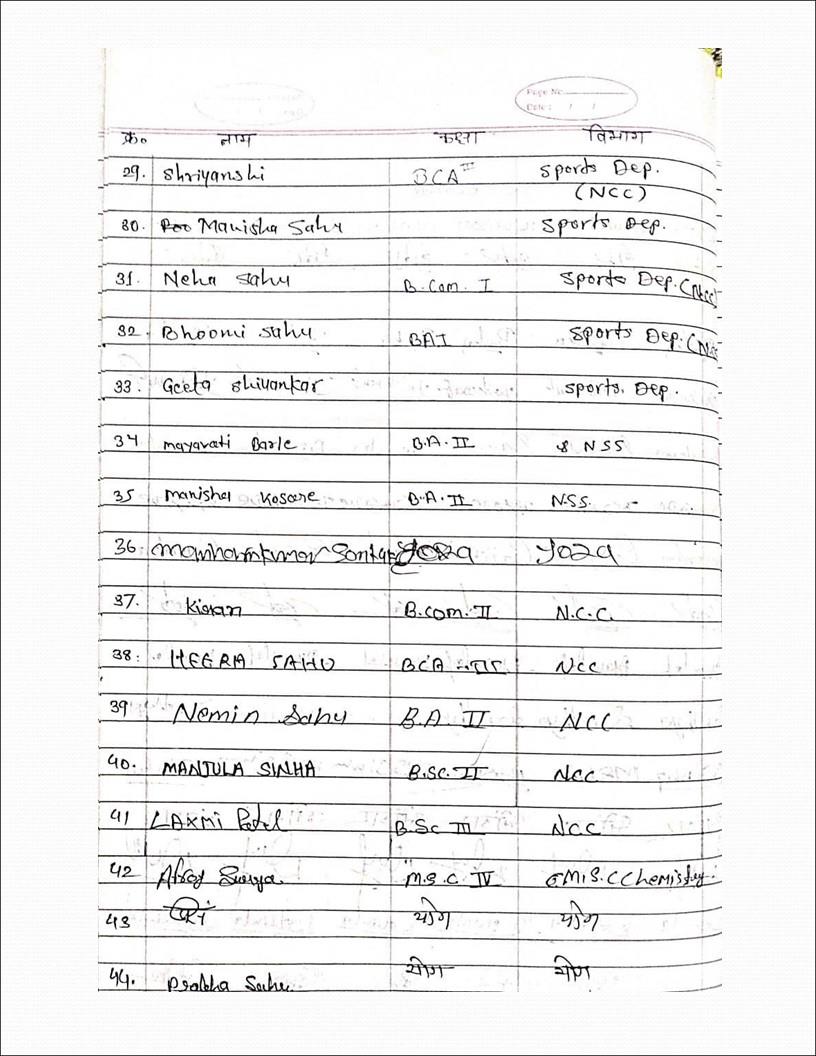 Page No.
Date: / /
क्र० नाम कक्षा विभाग
29. Shriyanshi BCA II Sports Dep.
(NCC)
30. Manisha Sahu Sports Dep.
31. Neha Sahu B.Com. I Sports Dep. (NCC)
32. Bhoomi Sahu BA I Sports Dep. (NSS
33. Geeta Shivankar Sports. Dep.
34 Mayavati Barle B.A. II NSS
35 Manisha Kosare B.A. II NSS.
36 Yoga
37. Kiran B.com. II N.C.C.
38. HEERA SAHU BCA NCC
39 Nemin Sahu B.A. II NCC
40. MANJULA SINHA B.SC. II NCC
41 LAXMI Patel B.Sc III NCC
42 M.S.C. IV M.S.C Chemistry
43 योग योग
44. Prabha Sahu योग योग